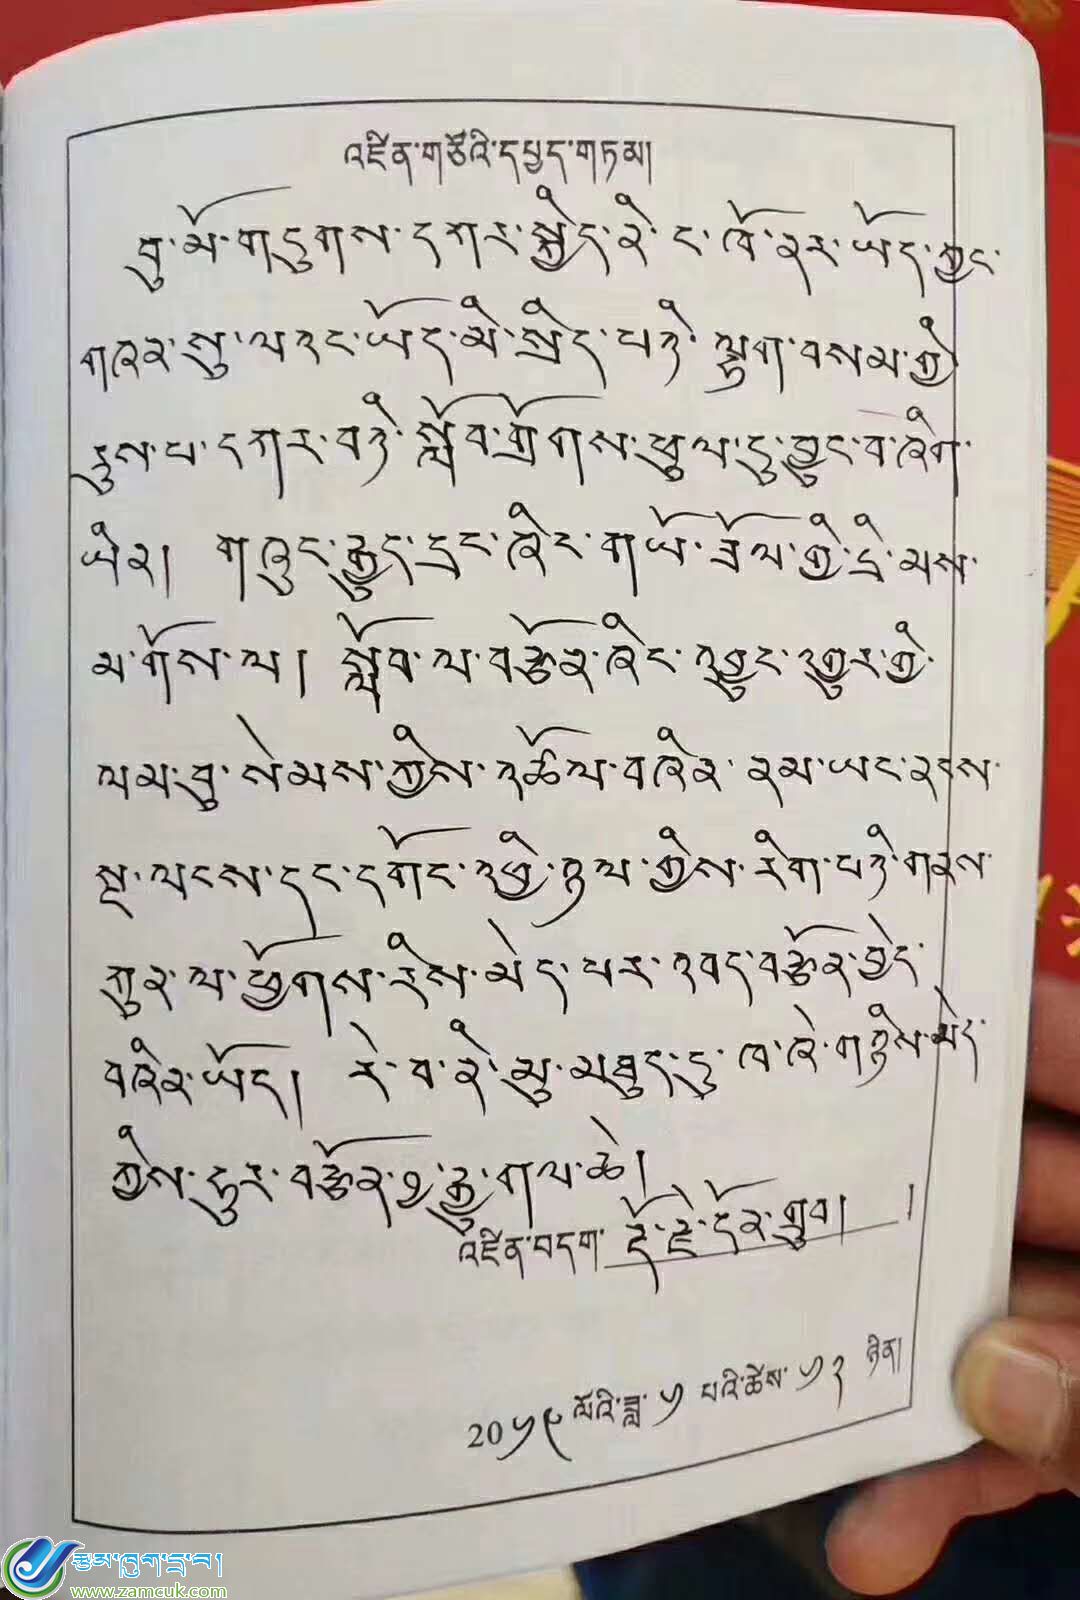 འཛིན་གཙོའི་དཔྱད་གཏམ།
བུ་མོ་གདུགས་དཀར་སྐྱིད་ནི་ང་ཁོ་ནར་ཡོད་ཀྱང་
གཞན་སུ་ལའང་ཡོད་མི་སྲིད་པའི་ལྷག་བསམ་གྱི
རུས་པ་དཀར་བའི་སློབ་གྲོགས་ཕུལ་དུ་བྱུང་བ་ཞིག་
ཡིན། གཞུང་རྒྱུད་དྲང་ཞིང་གཡོ་ཟོལ་གྱི་དྲི་མས་
མ་གོས་ལ། སློབ་ལ་བརྩོན་ཞིང་འབྱུང་འགྱུར་གྱི་
ལམ་བུ་སེམས་ཀྱིས་འཚོལ་བཞིན་ནམ་ཡང་ངས་
སྔ་ལངས་དང་དགོང་འཕྱི་ཉལ་གྱིས་རིག་པའི་གནས་
ཀུན་ལ་ཕྱོགས་རིས་མེད་པར་འབད་བརྩོན་བྱེད་
བཞིན་ཡོད། རེ་བ་ནི་མུ་མཐུད་དུ་ཁ་ཞེ་གཉིས་མེད་
ཀྱིས་དུར་བརྩོན་བྱ་རྒྱུ་གལ་ཆེ།
འཛིན་བདག་ རྡོ་རྗེ་དོན་གྲུབ། །
20༡༩ ལོའི་ཟླ་ ༡ པའི་ཚེས་ ༡༢ ཉིན།
རྩམ་ཁུག་དྲ་བ།
www.zamcuk.com